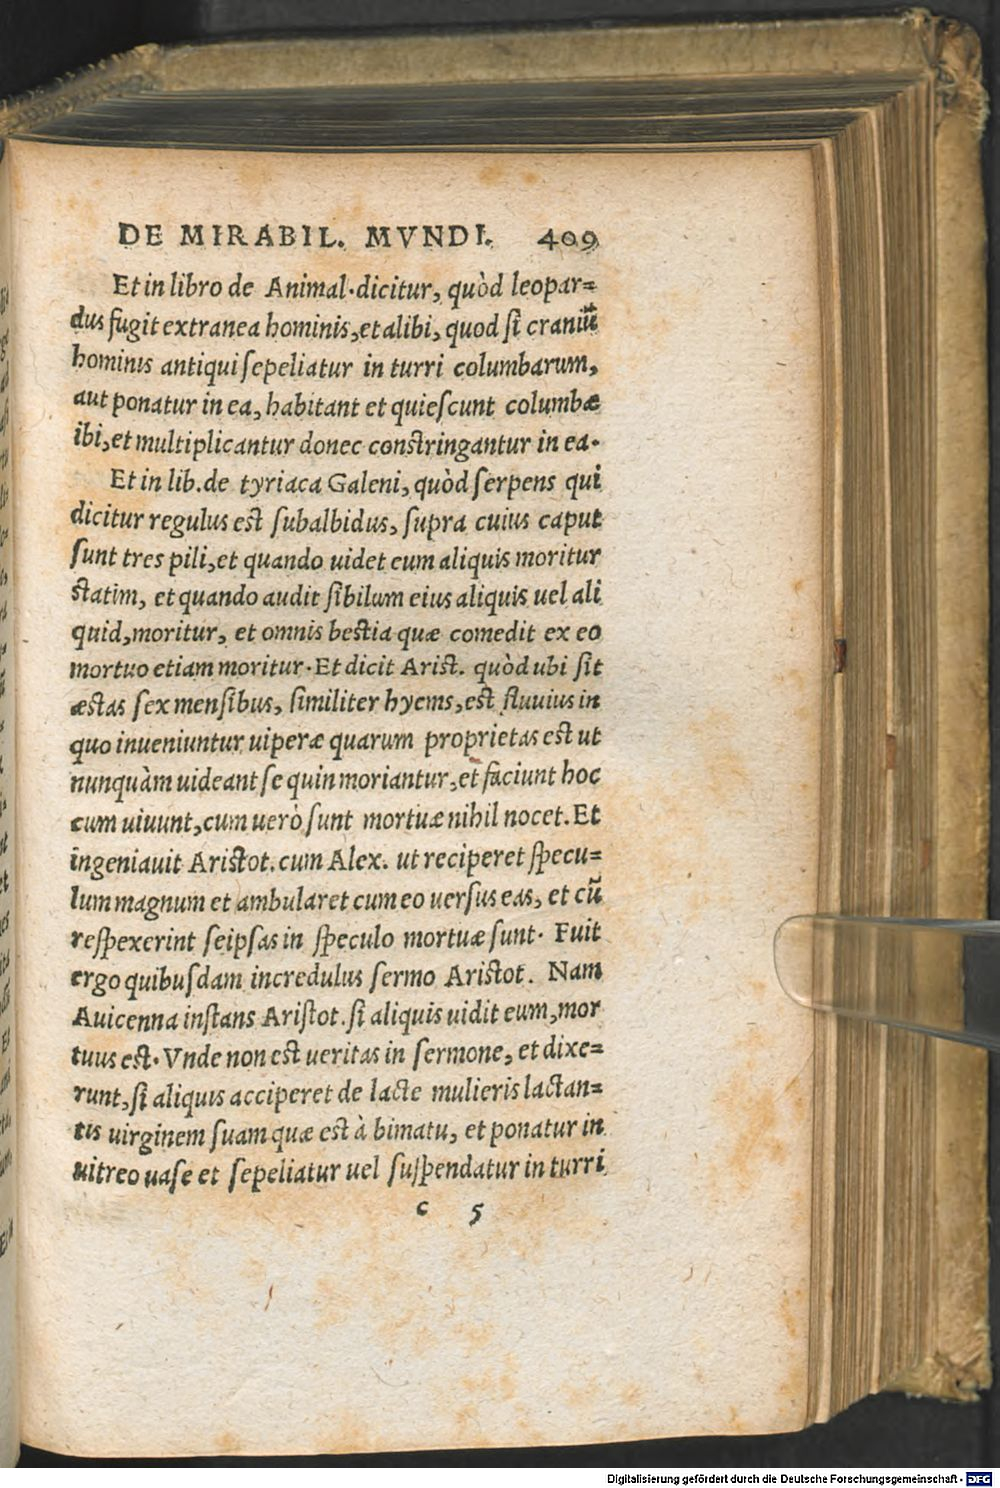 DE MIRABIL. MVNDI. 409
Et in libro de Animal. dicitur, quòd leopar=
dus fugit extranea hominis, et alibi, quod si craniũ
hominis antiqui sepeliatur in turri columbarum,
aut ponatur in ea, habitant et quiescunt columbæ
ibi, et multiplicantur donec constringantur in ea.
Et in lib. de tyriaca Galeni, quòd serpens qui
dicitur regulus est subalbidus, supra cuius caput
sunt tres pili, et quando uidet eum aliquis moritur
statim, et quando audit sibilum eius aliquis uel ali
quid, moritur, et omnis bestia quæ comedit ex eo
mortuo etiam moritur. Et dicit Arist. quòd ubi sit
æstas sex mensibus, similiter hyems, est fluuius in
quo inueniuntur uiperæ quarum proprietas est ut
nunquàm uideant se quin moriantur, et faciunt hoc
cum uiuunt, cum uerò sunt mortuæ nihil nocet. Et
ingeniauit Aristot. cum Alex. ut reciperet specu=
lum magnum et ambularet cum eo uersus eas, et cũ
respexerint seipsas in speculo mortuæ sunt. Fuit
ergo quibusdam incredulus sermo Aristot. Nam
Auicenna instans Aristot. si aliquis uidit eum, mor
tuus est. Vnde non est ueritas in sermone, et dixe=
runt, si aliquis acciperet de lacte mulieris lactan=
tis uirginem suam quæ est à bimatu, et ponatur in
uitreo uase et sepeliatur uel suspendatur in turri
c 5
Digitalisierung gefördert durch die Deutsche Forschungsgemeinschaft - DFG